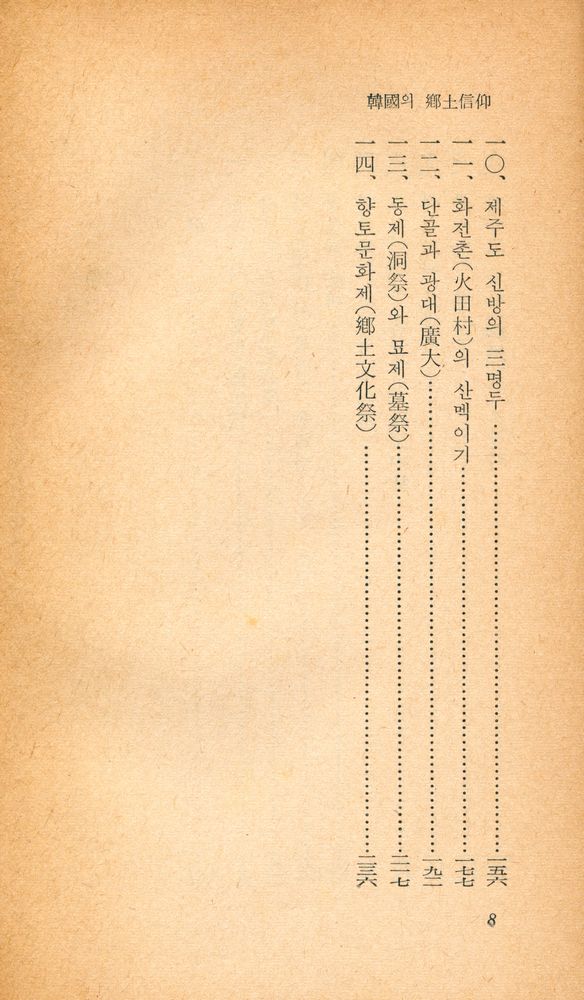 韓國의 鄕土信仰
一〇、제주도 신방의 三명두……一五六
一一、화전촌(火田村)의 산멕이기……一七七
一二、단골과 광대(廣大)……一九二
一三、동제(洞祭)와 묘제(墓祭)……二一七
一四、향토문화제(鄕土文化祭)……二三六
8